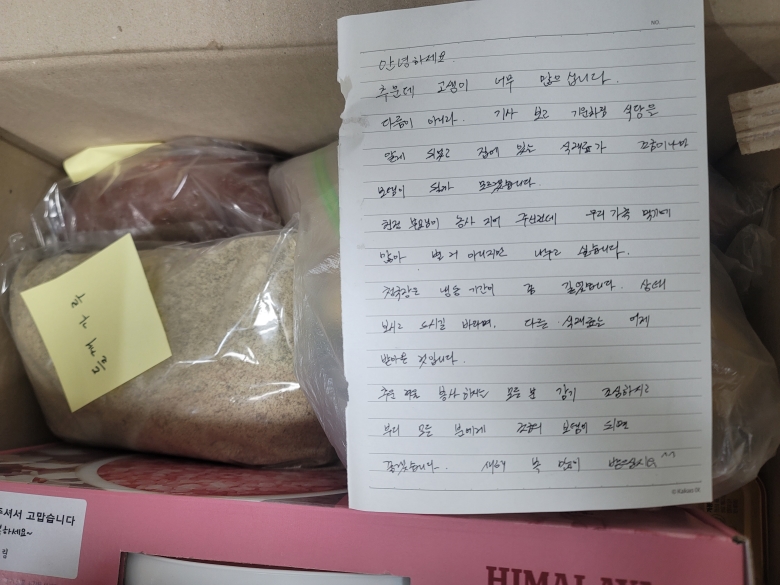 NO.
안녕하세요.
추운데 고생이 너무 많으십니다.
다름이 아니라. 기사 보고 기운차림 식당을
알게 되었고 집에 있는 식재료가 조금이나마
보탬이 될까 모르겠습니다.
친정 부모님이 농사 지어 주신건데 우리 가족 먹기에
많아 별 거 아니지만 나누고 싶습니다.
청국장은 냉동 기간이 좀 길었습니다. 상태
보시고 드시길 바라며, 다른 식재료는 어제
받아온 것입니다.
추운 겨울 봉사하시는 모든 분 감기 조심하시고
부디 모든 분에게 조금의 보탬이 되면
좋겠습니다. 새해 복 많이 받으십시오 ^^
© Kakao IX
들깨가루
주셔서 고맙습니다
하세요~
림